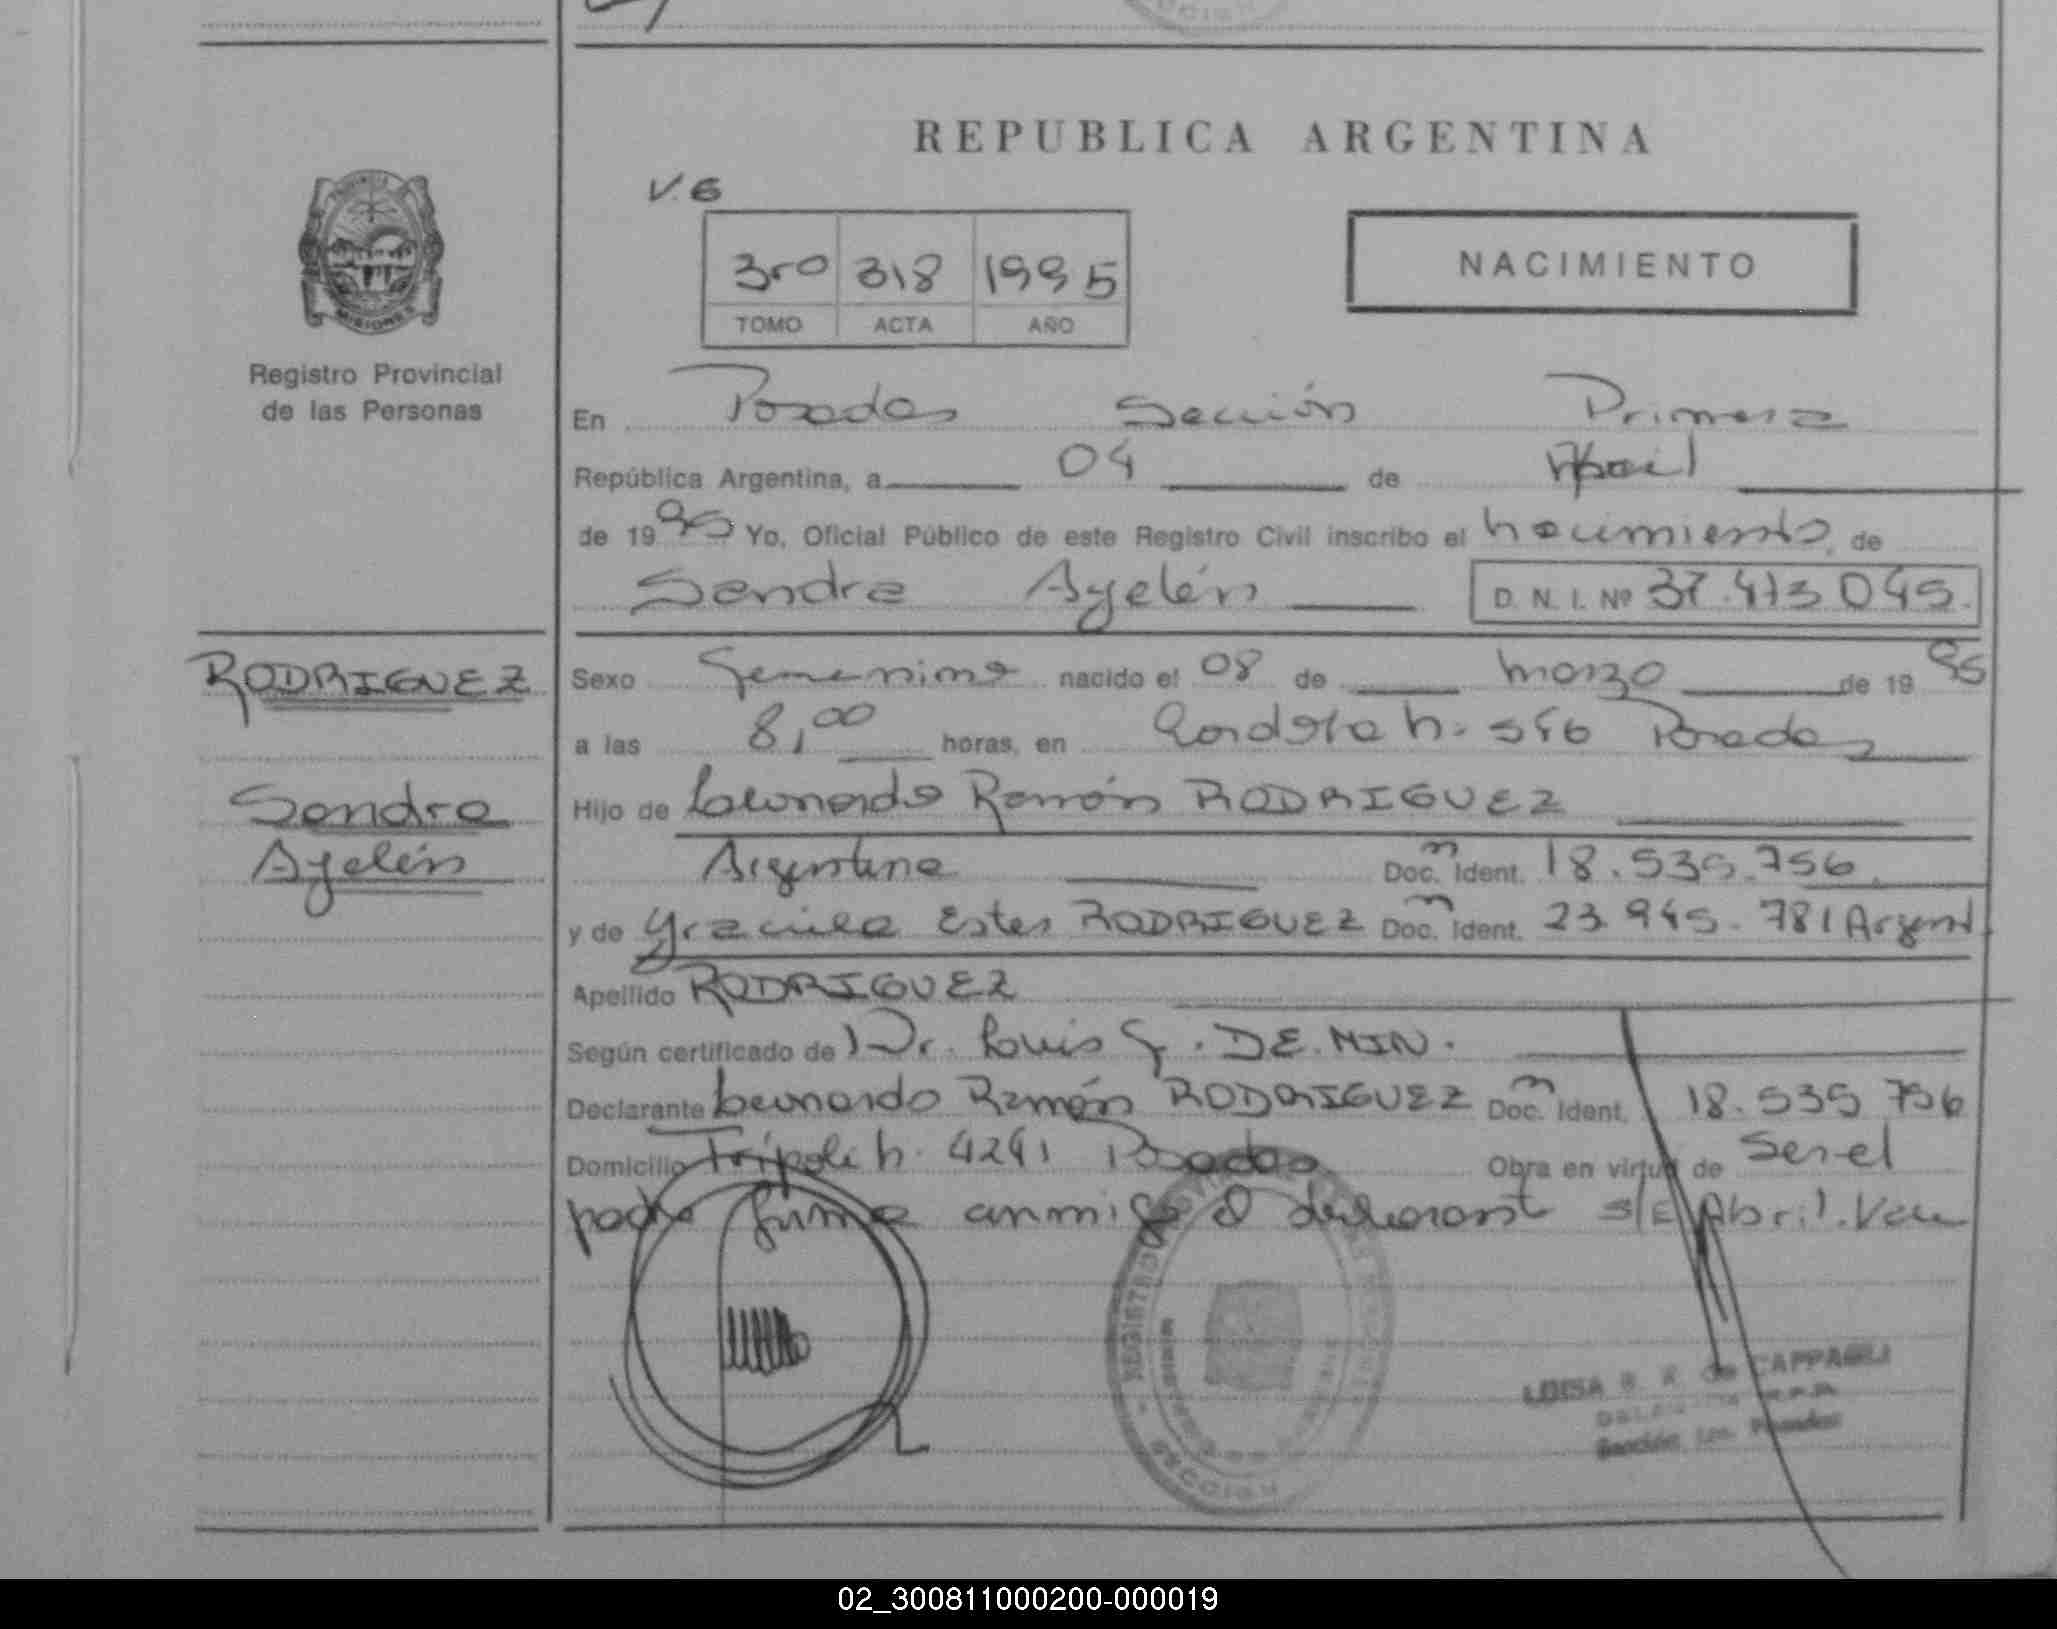 REPUBLICA ARGENTINA
V. 6
3ro 318 1995
TOMO ACTA AÑO
NACIMIENTO
MISIONES
Registro Provincial
de las Personas
En Posadas Sección Primera
República Argentina, a 04 de Abril
de 1995 Yo, Oficial Público de este Registro Civil inscribo el nacimiento, de
Sandra Ayelén D. N. I. Nº 37.413.045.
RODRIGUEZ
Sandra
Ayelén
Sexo femenino nacido el 08 de marzo de 1995
a las 8,00 horas, en 546 Posadas
Hijo de Leonardo Ramón RODRIGUEZ
Argentina Doc. Ident. 18.535.756
y de Graciela Ester RODRIGUEZ Doc. Ident. 23.945.781 Argent
Apellido RODRIGUEZ
Según certificado de Dr. Luis G. DE.MIN.
Declarante Leonardo Ramón RODRIGUEZ Doc. Ident. 18.535 756
Domicilio Trípoli n. 4241 Posadas Obra en virtud de Ser el
padre firma conmigo el declarante s/E Abril. Vale
REGISTRO
LUISA R. R. de CAPPAGLI
Sección 1ra. Posadas
02_300811000200-000019